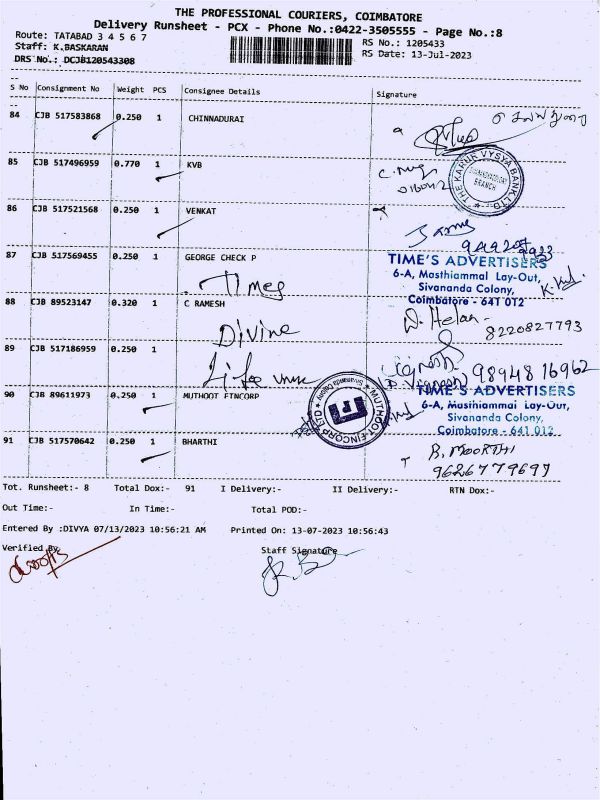 THE PROFESSIONAL COURIERS, COIMBATORE
Delivery Runsheet - PCX - Phone No.:0422-3505555 - Page No.:8
Route: TATABAD 3 4 5 6 7
RS No.: 1205433
Staff: K.BASKARAN
RS Date: 13-Jul-2023
DRS No.: DCJB120543308
S No Consignment No Weight PCS Consignee Details Signature
84 CJB 517583868 0.250 1 CHINNADURAI
85 CJB 517496959 0.770 1 KVB
THE KARUR VYSYA BANK LTD
BRANCH
86 CJB 517521568 0.250 1 VENKAT
87 CJB 517569455 0.250 1 GEORGE CHECK P
TIME'S ADVERTISERS
6-A, Masthiammal Lay-Out,
Sivananda Colony,
Coimbatore - 641 012
Times
88 CJB 89523147 0.320 1 C RAMESH
D. Helan
8220827793
Divine
89 CJB 517186959 0.250 1
Life
9894816962
90 CJB 89611973 0.250 1 MUTHOOT FINCORP
MUTHOOT FINCORP LTD
TIME'S ADVERTISERS
6-A, Masthiammal Lay-Out,
Sivananda Colony,
Coimbatore - 641 012
91 CJB 517570642 0.250 1 BHARTHI
R. MOORTHI
9626779697
Tot. Runsheet:- 8 Total Dox:- 91 I Delivery:- II Delivery:- RTN Dox:-
Out Time:- In Time:- Total POD:-
Entered By :DIVYA 07/13/2023 10:56:21 AM Printed On: 13-07-2023 10:56:43
Verified By
Staff Signature